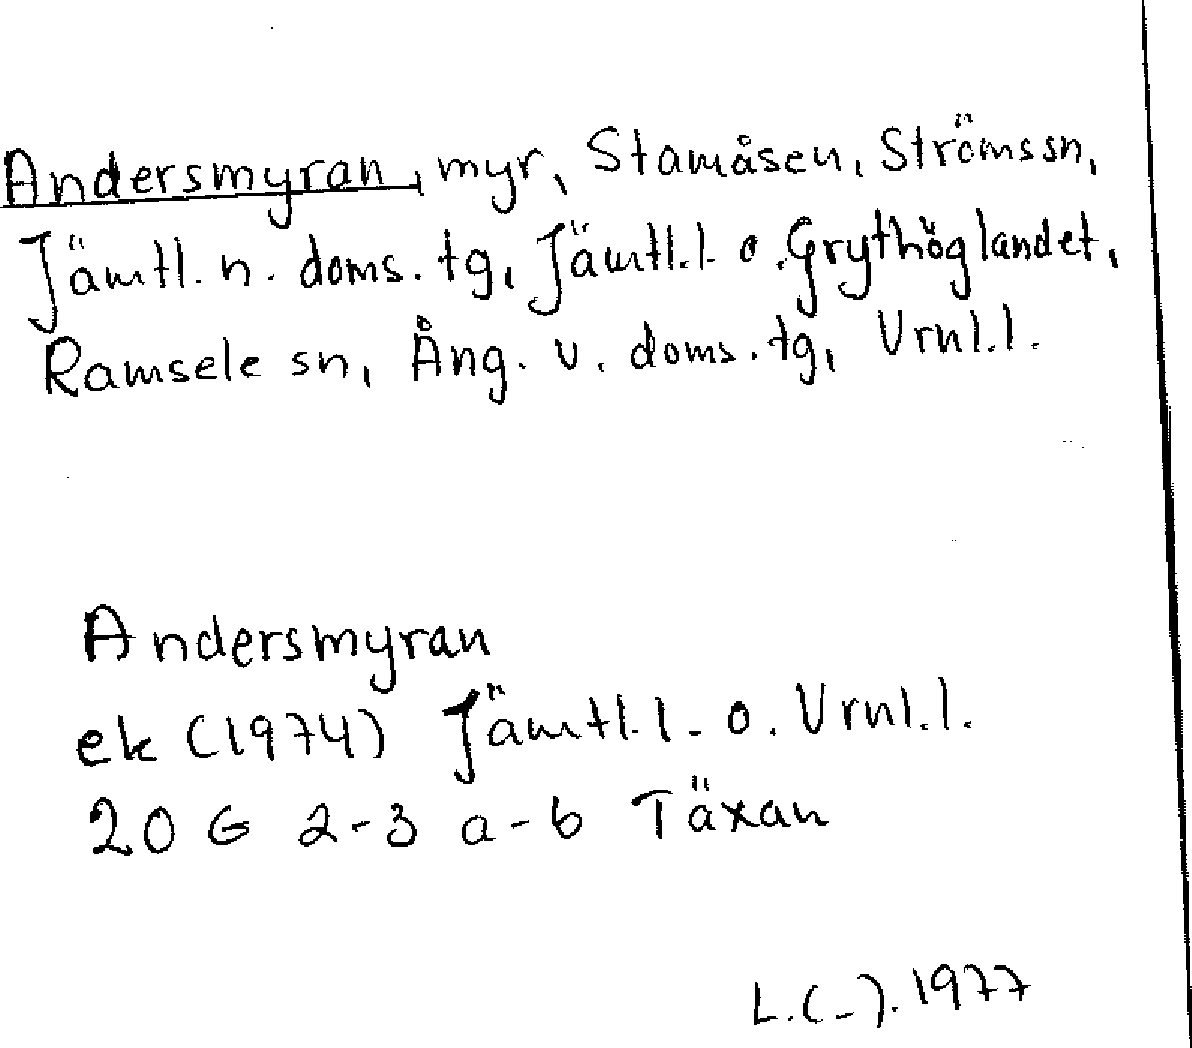 Andersmyran, myr, Stamåsen, Ströms sn,
Jämtl. n. doms. tg, Jämtl. l. o. Grythöglandet,
Ramsele sn, Ång. v. doms. tg, Vrnl. l.
Andersmyran
ek (1974) Jämtl. l. o. Vrnl. l.
20 G 2-3 a-b Täxan
L.(-). 1977